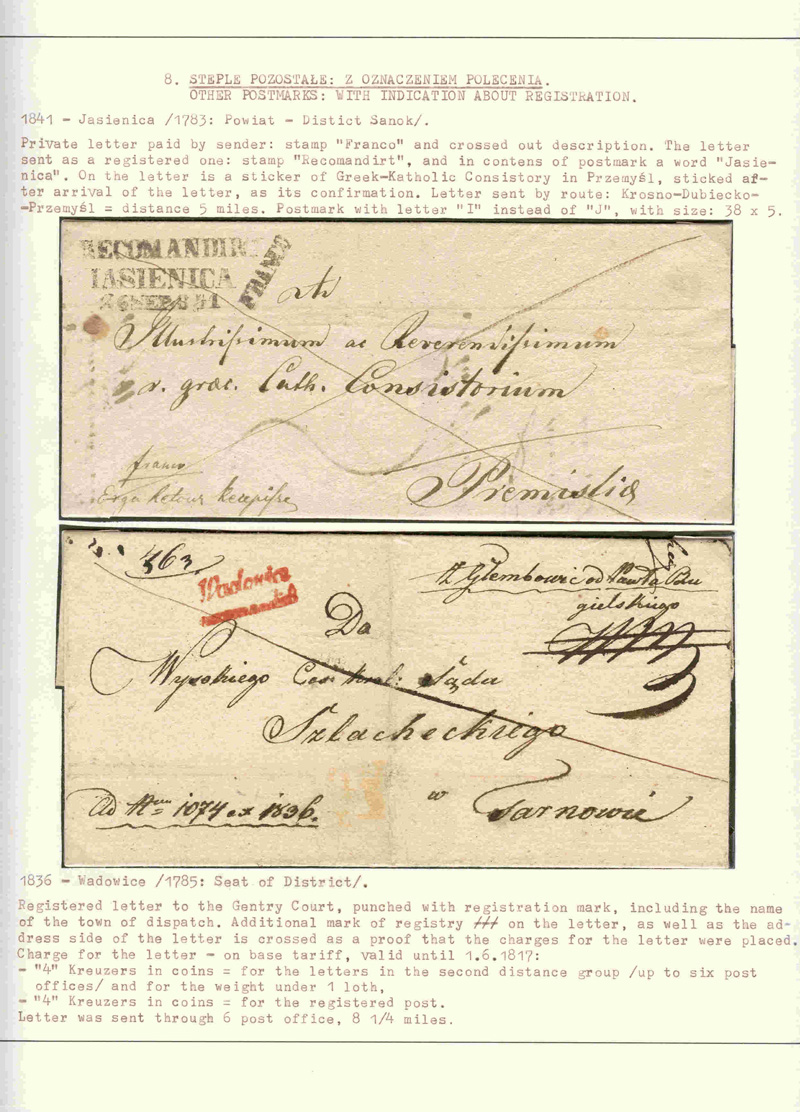 8. STEPLE POZOSTAŁE: Z OZNACZENIEM POLECENIA.
OTHER POSTMARKS: WITH INDICATION ABOUT REGISTRATION.
1841 - Jasienica /1783: Powiat - Distict Sanok/.
Private letter paid by sender: stamp "Franco" and crossed out description. The letter
sent as a registered one: stamp "Recomandirt", and in contens of postmark a word "Jasie-
nica". On the letter is a sticker of Greek-Katholic Consistory in Przemyśl, sticked af-
ter arrival of the letter, as its confirmation. Letter sent by route: Krosno-Dubiecko-
-Przemyśl = distance 5 miles. Postmark with letter "I" instead of "J", with size: 38 x 5.
RECOMANDIRT
IASIENICA
FRANCO
Illustrissimum ac Reverendissimum
r. graec. Cath. Consistorium
franco
Premislia
363.
Wadowice
Do
Wysokiego Ces: Kral: Sądu
Szlacheckiego
w Tarnowie
Ad Num 1074 ex 1836.
1836 - Wadowice /1785: Seat of District/.
Registered letter to the Gentry Court, punched with registration mark, including the name
of the town of dispatch. Additional mark of registry /// on the letter, as well as the ad-
dress side of the letter is crossed as a proof that the charges for the letter were placed.
Charge for the letter - on base tariff, valid until 1.6.1817:
- "4" Kreuzers in coins = for the letters in the second distance group /up to six post
offices/ and for the weight under 1 loth,
- "4" Kreuzers in coins = for the registered post.
Letter was sent through 6 post office, 8 1/4 miles.